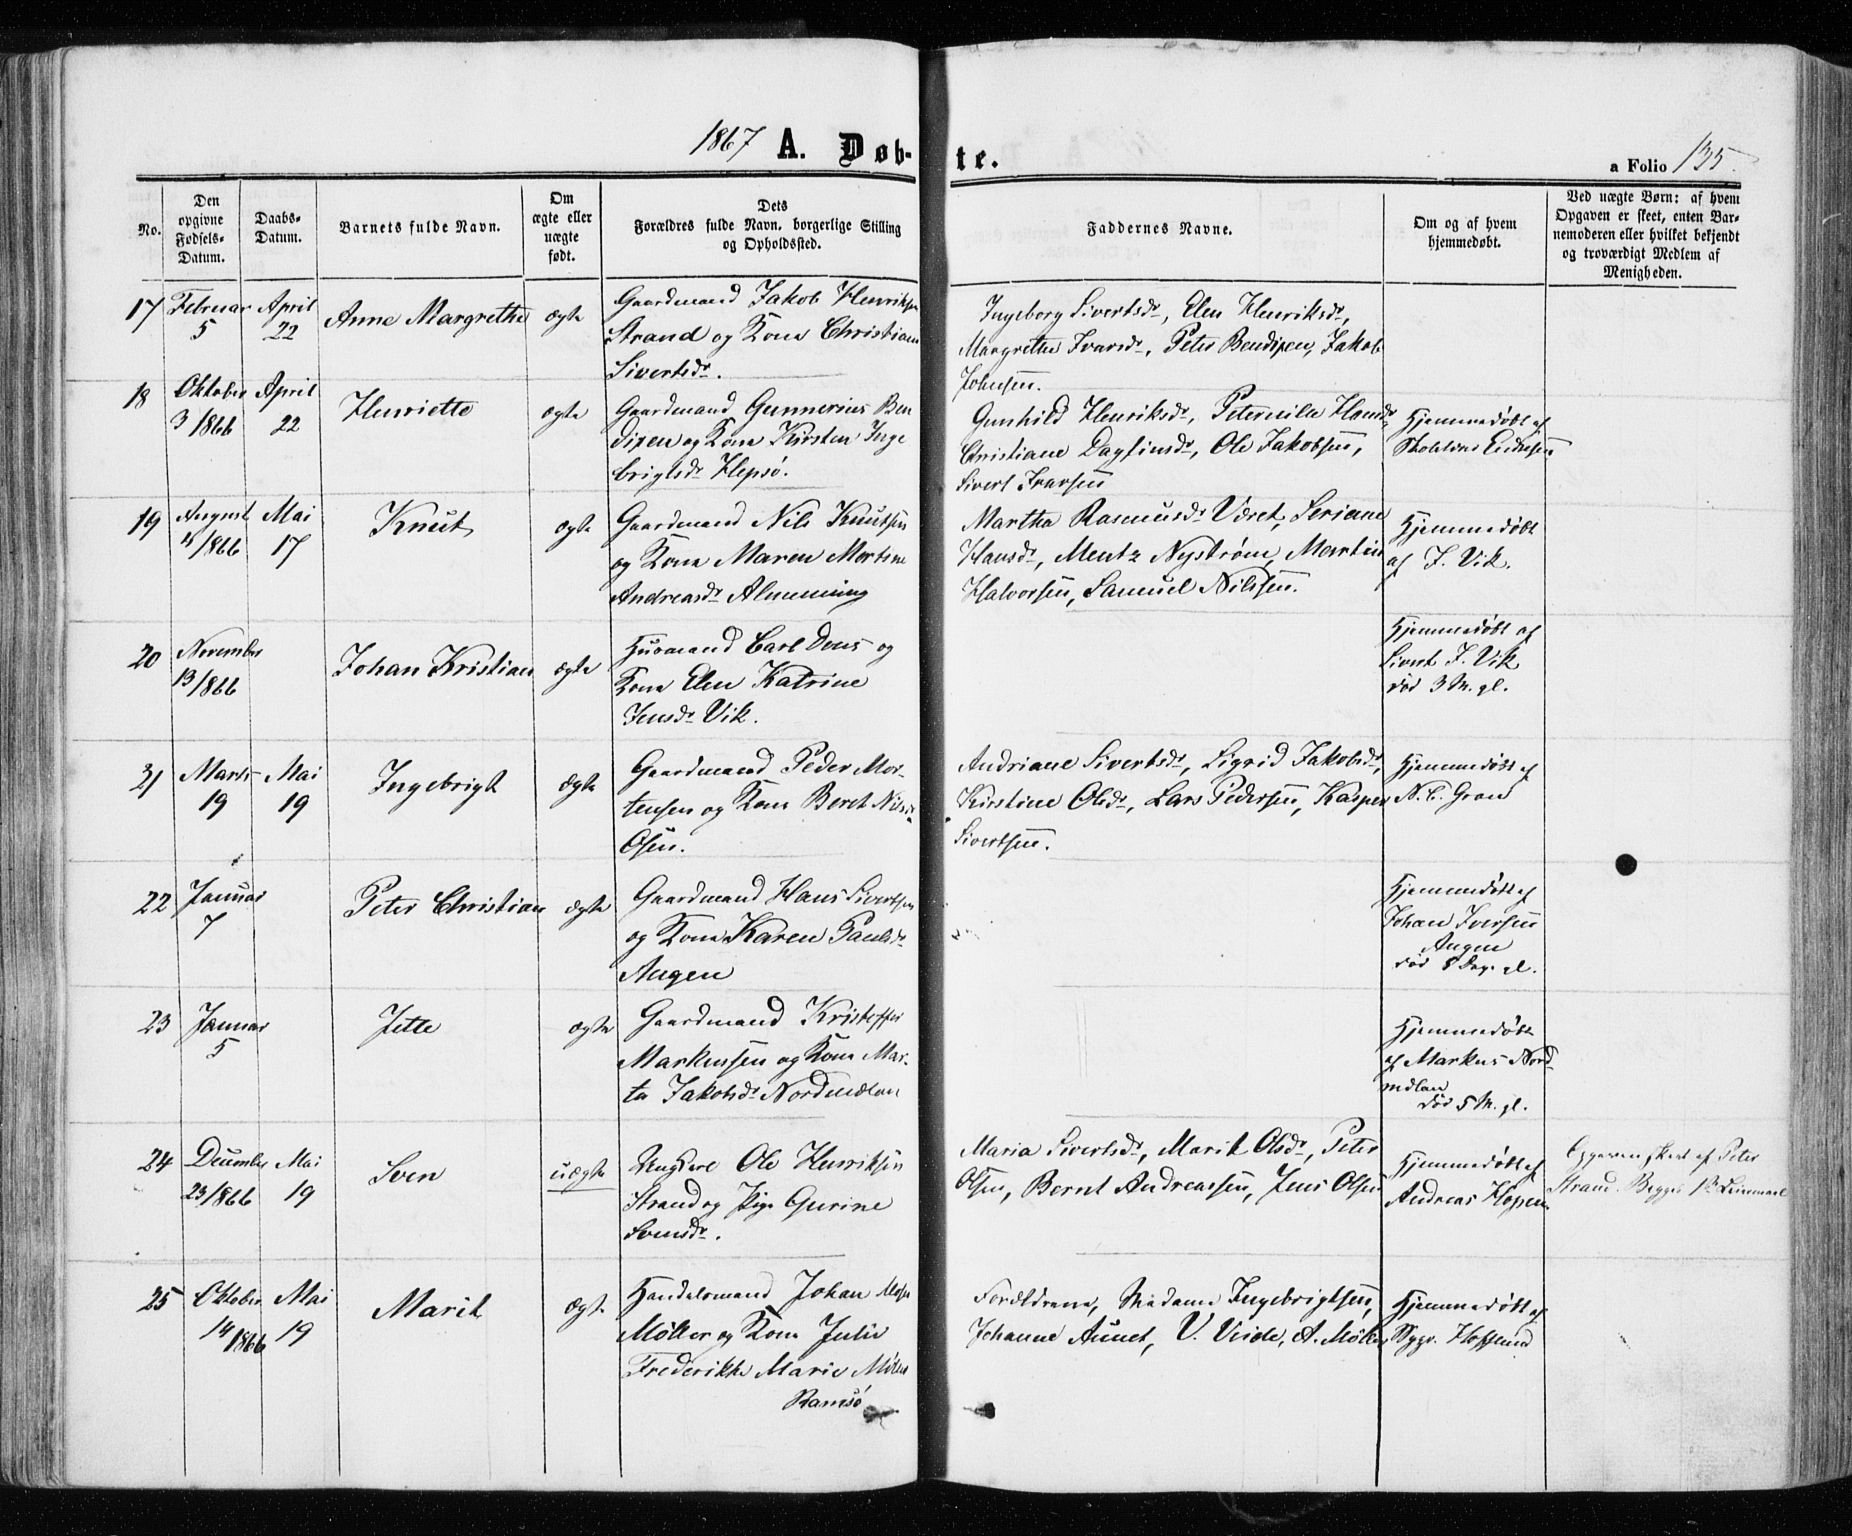 1867 A. Døb-
te.
a Folio 135.
No.
Den
opgivne
Fødsels-
Datum.
Daabs-
Datum.
Barnets fulde Navn.
Om
ægte eller
uægte
født.
Dets
Forældres fulde Navn, borgerlige Stilling
og Opholdssted.
Faddernes Navne.
Om og af hvem
hjemmedøbt.
Ved uægte Børn: af hvem
Opgaven er skeet, enten Bar-
nemoderen eller hvilket bekjendt
og troværdigt Medlem af
Menigheden.
17 Februar
5
April
22
Anne Margrethe
ægte
Gaardmand Jakob Henriksen
Strand og Kone Christiane
Sivertsdr.
Ingeborg Sivertsdr, Elen Henriksdr,
Margrethe Ivarsdr, Peter Bendixen, Jakob
Johnsen.
18 Oktober
3/1866
April
22
Henriette
ægte
Gaardmand Gunnerius Ben
dixen og Kone Kirsten Inge
brigtsdr Hepsø.
Gunhild Henriksdr, Peternille Hansdr,
Christiane Dagfinsdr, Ole Jakobsen,
Sivert Ivarsen
Hjemmedøbt af
19 August
/1866
Mai
17
Knut
ægte
Gaardmand Nils Knutsen
og Kone Maren Mortine
Andreasdr Almenning
Martha Rasmusdr Været, Seriane
Hansdr, Mentz Nystrøm, Martin
Halvorsen, Samuel Nilssen.
Hjemmedøbt
af J. Vik.
20 November
13/1866
Johan Kristian
ægte
Husmand Carl Dens og
Kone Elen Katrine
Jensdr Vik.
Hjemmedøbt af
Sivert J. Vik
død 3 M. gl.
21 Marts
19
Mai
19
Ingebrigt
ægte
Gaardmand Peder Mor-
tensen og Kone Beret Nilsdr
Osen.
Andriane Sivertsdr, Sigrid Jakobsdr,
Kirstine Olsdr, Lars Pedersen, Kasper
Sivertsen.
Hjemmedøbt af
N. C. Gran
22 Januar
7
Peter Christian
ægte
Gaardmand Hans Sivertsen
og Kone Karen Paulsdr
Angen
Hjemmedøbt af
Johan Iversen
Angen
død 8 Dag. gl.
23 Januar
5
Jette
ægte
Gaardmand Kristoffer
Markussen og Kone Mar-
ta Jakobsdr Nordmælan
Hjemmedøbt
af Markus Nord-
mælan
død 5 M. gl.
24 December
23/1866
Mai
19
Sven
uægte
Ungkarl Ole Henriksen
Strand og Pige Gurine
Svensdr.
Maria Sivertsdr, Marit Olsdr, Peter
Olsen, Bernt Andreassen, Jens Olsen
Hjemmedøbt af
Andreas Hopen.
Opgaven skeet af Peter
Strand. Begges 1ste Leiermaal
25 Oktober
14/1866
Mai
19
Marit
ægte
Handelsmand Johan
Møller og Kone Julie
Frederikke Marie Møller
Ramsø
Forældrene, Madame Ingebrigtsen,
Johanne Aunet, V. Veide, A. Møller
Hjemmedøbt af